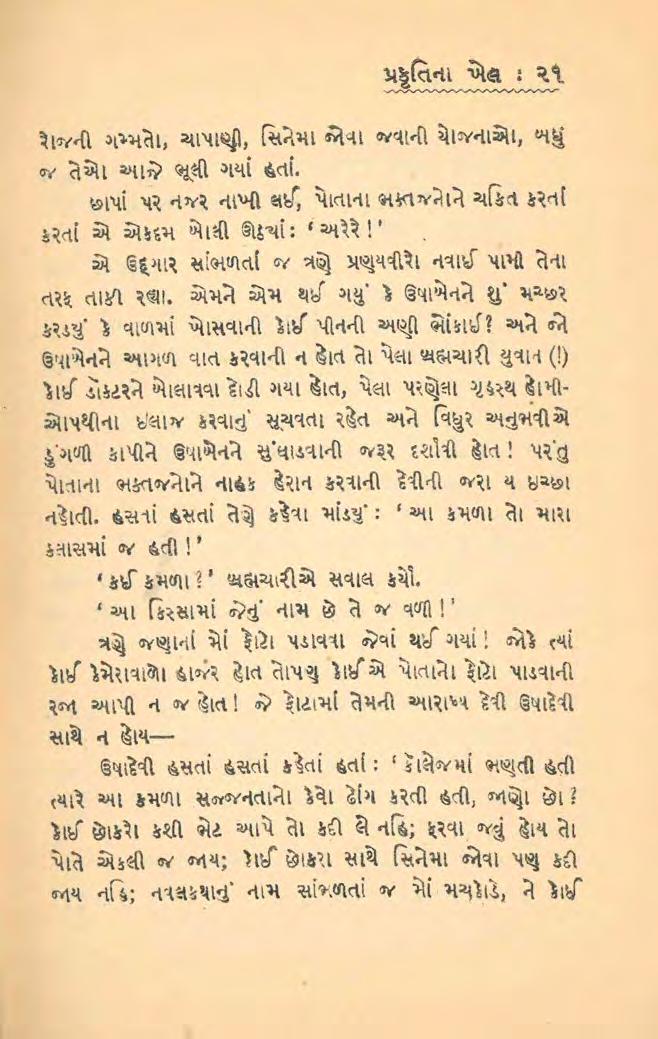 પ્રકૃતિના ખેલ : ૨૧
રોજની ગમ્મતો, ચાપાણી, સિનેમા જોવા જવાની યોજનાઓ, બધું
જ તેઓ આજે ભૂલી ગયાં હતાં.
છાપાં પર નજર નાખી લઈ, પોતાના ભક્તજનોને ચકિત કરતાં
કરતાં એ એકદમ બોલી ઊઠ્યાં : ‘ અરેરે ! ’
એ ઉદ્ગાર સાંભળતાં જ ત્રણે પ્રણયવીરો નવાઈ પામી તેના
તરફ તાકી રહ્યા. એમને એમ થઈ ગયું કે ઉષાબેનને શું મચ્છર
કરડ્યું કે વાળમાં ખોસવાની કોઈ પીનની અણી ભોંકાઈ? અને જો
ઉષાબેનને આગળ વાત કરવાની ન હોત તો પેલા બ્રહ્મચારી યુવાન (!)
કોઈ ડૉક્ટરને બોલાવવા દોડી ગયા હોત, પેલા પરણેલા ગૃહસ્થ હોમી-
ઓપથીના ઇલાજ કરવાનું સૂચવતા રહેત અને વિધુર અનુભવીએ
ડુંગળી કાપીને ઉષાબેનને સુંઘાડવાની જરૂર દર્શાવી હોત ! પરંતુ
પોતાના ભક્તજનોને નાહક હેરાન કરવાની દેવીની જરા ય ઇચ્છા
નહોતી. હસતાં હસતાં તેણે કહેવા માંડ્યું : ‘ આ કમળા તો મારા
ક્લાસમાં જ હતી ! ’
‘ કઈ કમળા ? ’ બ્રહ્મચારીએ સવાલ કર્યો.
‘ આ કિસ્સામાં જેનું નામ છે તે જ વળી ! ’
ત્રણે જણાનાં મોં ફોટો પડાવવા જેવાં થઈ ગયાં ! જોકે ત્યાં
કોઈ કેમેરાવાળો હાજર હોત તોપણ કોઈએ પોતાનો ફોટો પાડવાની
રજા આપી ન જ હોત ! જે ફોટામાં તેમની આરાધ્ય દેવી ઉષાદેવી
સાથે ન હોય—
ઉષાદેવી હસતાં હસતાં કહેતાં હતાં : ‘ કૉલેજમાં ભણતી હતી
ત્યારે આ કમળા સજ્જનતાનો કેવો ઢોંગ કરતી હતી, જાણો છો ?
કોઈ છોકરો કશી ભેટ આપે તો કદી લે નહિ; ફરવા જવું હોય તો
પોતે એકલી જ જાય; કોઈ છોકરા સાથે સિનેમા જોવા પણ કદી
જાય નહિ; નવલકથાનું નામ સાંભળતાં જ મોં મચકોડે, ને કોઈ